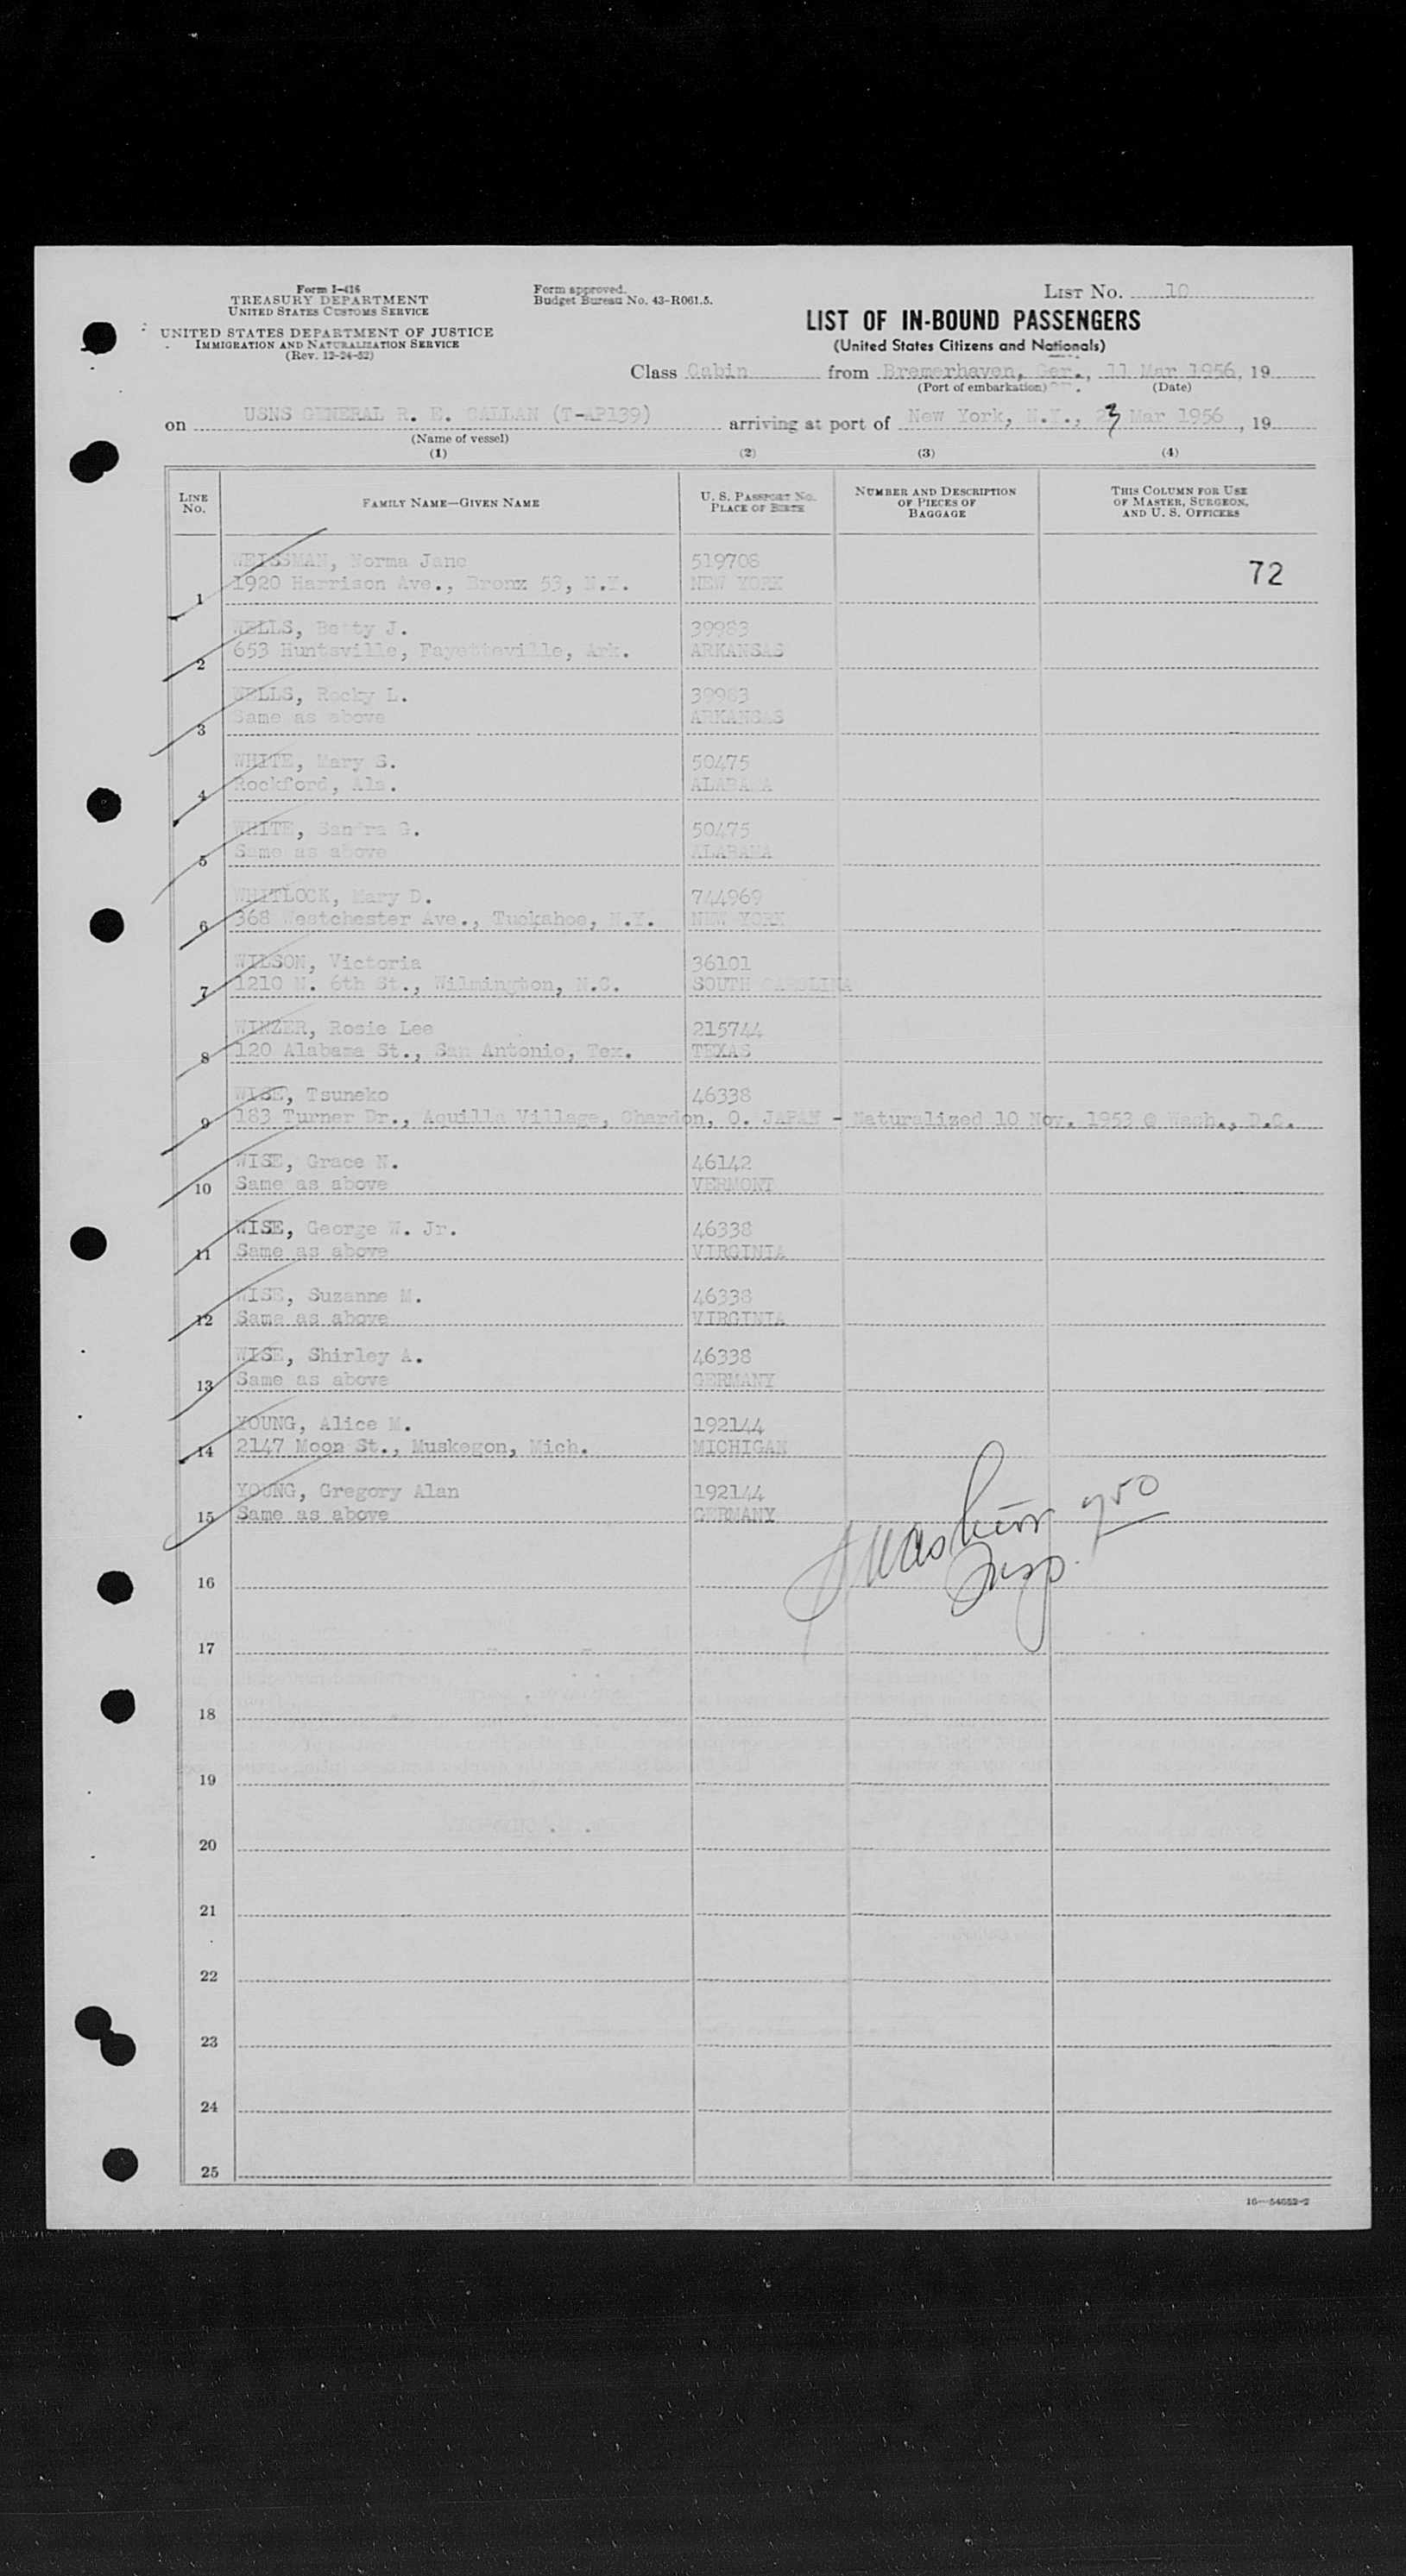 Form I-416
TREASURY DEPARTMENT
UNITED STATES CUSTOMS SERVICE
UNITED STATES DEPARTMENT OF JUSTICE
IMMIGRATION AND NATURALIZATION SERVICE
(Rev. 12-24-52)
Form approved.
Budget Bureau No. 43-R061.5.
LIST NO. 10
LIST OF IN-BOUND PASSENGERS
(United States Citizens and Nationals)
Class Cabin from Bremerhaven, Ger., 11 Mar 1956, 19
(Port of embarkation) (Date)
on USNS GENERAL R. E. CALLAN (T-AP139) arriving at port of New York, N.Y., 23 Mar 1956, 19
(Name of vessel)
(1) (2) (3) (4)
LINE NO. FAMILY NAME—GIVEN NAME U. S. PASSPORT NO. PLACE OF BIRTH NUMBER AND DESCRIPTION OF PIECES OF BAGGAGE THIS COLUMN FOR USE OF MASTER, SURGEON, AND U. S. OFFICERS
WEISSMAN, Norma Jane 519708 72
1 1920 Harrison Ave., Bronx 53, N.Y. NEW YORK
WELLS, Betty J. 39983
2 653 Huntsville, Fayetteville, Ark. ARKANSAS
WELLS, Rocky L. 39983
3 Same as above ARKANSAS
WHITE, Mary S. 50475
4 Rockford, Ala. ALABAMA
WHITE, Sandra G. 50475
5 Same as above ALABAMA
WHITLOCK, Mary D. 744969
6 368 Westchester Ave., Tuckahoe, N.Y. NEW YORK
WILSON, Victoria 36101
7 1210 N. 6th St., Wilmington, N.C. SOUTH CAROLINA
WINZER, Rosie Lee 215744
8 120 Alabama St., San Antonio, Tex. TEXAS
WISE, Tsuneko 46338
9 183 Turner Dr., Aquilla Village, Chardon, O. JAPAN - Naturalized 10 Nov. 1953 @ Wash., D.C.
WISE, Grace N. 46142
10 Same as above VERMONT
WISE, George W. Jr. 46338
11 Same as above VIRGINIA
WISE, Suzanne M. 46338
12 Same as above VIRGINIA
WISE, Shirley A. 46338
13 Same as above GERMANY
YOUNG, Alice M. 192144
14 2147 Moon St., Muskegon, Mich. MICHIGAN
YOUNG, Gregory Alan 192144
15 Same as above GERMANY
16
17
18
19
20
21
22
23
24
25
16—54652-2